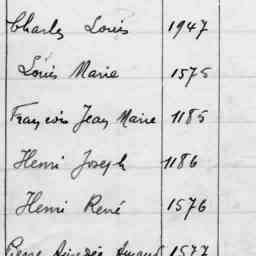 Charles Louis 1947
Louis Marie 1575
François Jean Marie 1185
Henri Joseph 1186
Henri René 1576
Pierre 1577